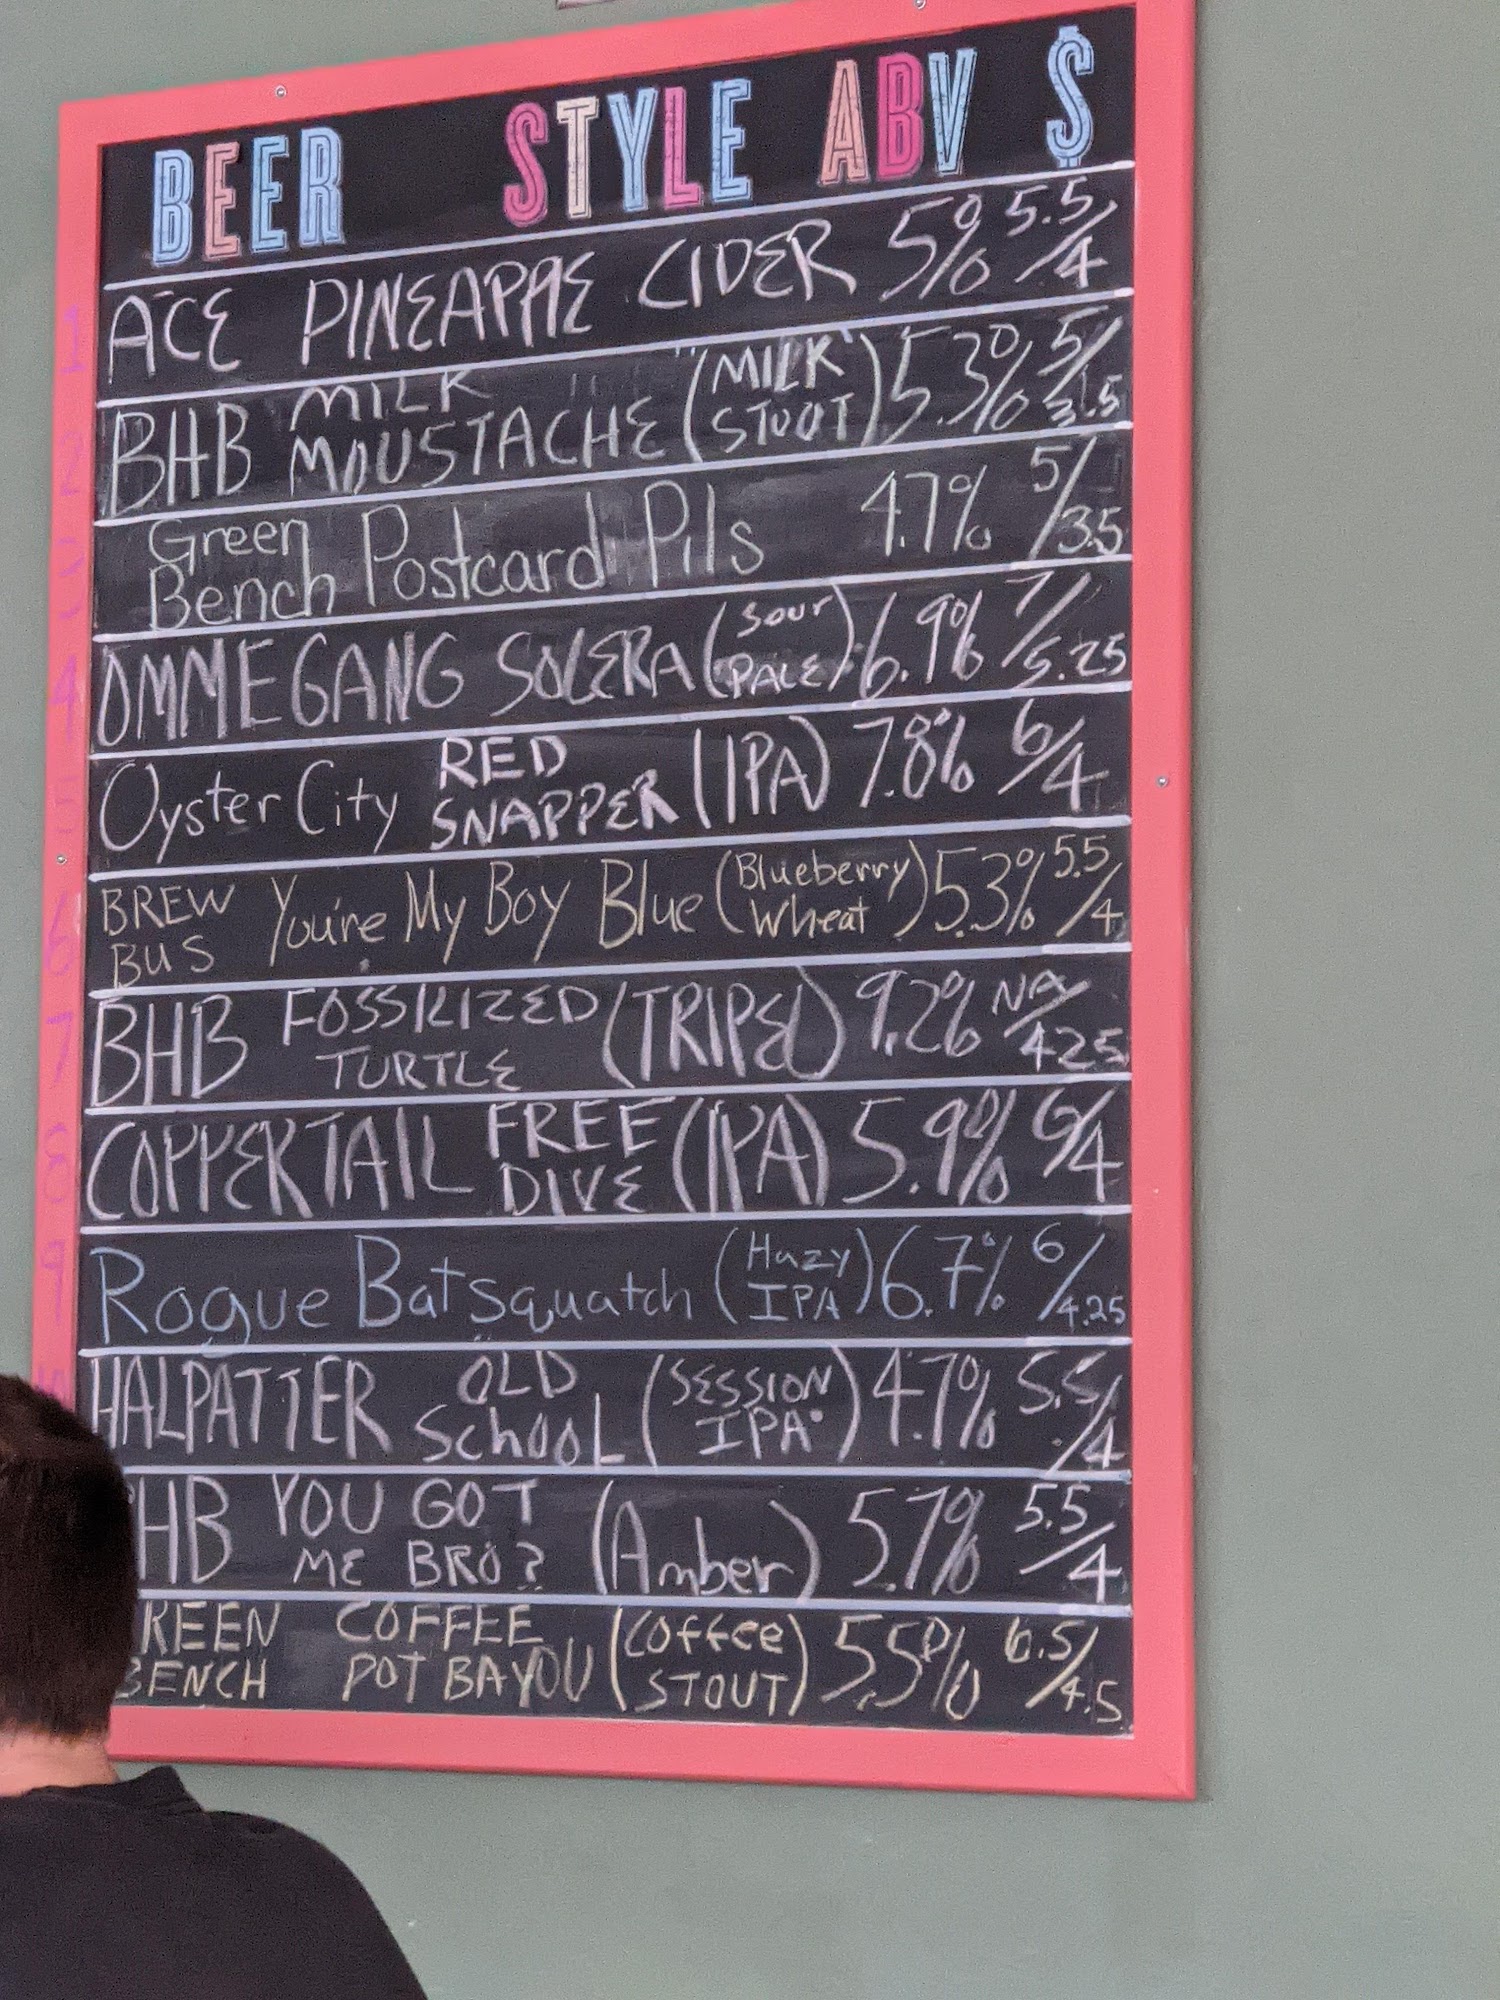 BEER STYLE ABV $
ACE PINEAPPLE CIDER 5% 5.5/4
BHB MILK MOUSTACHE (MILK STOUT) 5.3% 5/3.5
Green Bench Postcard Pils 4.7% 5/3.5
OMMEGANG SOLERA (Sour PALE) 6.9% 7/5.25
Oyster City RED SNAPPER (IPA) 7.8% 6/4
BREW BUS You're My Boy Blue (Blueberry Wheat) 5.3% 5.5/4
BHB FOSSILIZED TURTLE (TRIPEL) 9.2% NA/4.25
COPPERTAIL FREE DIVE (IPA) 5.9% 6/4
Rogue Batsquatch (Hazy IPA) 6.7% 6/4.25
HALPATTER OLD SchOOL (SESSION IPA) 4.7% 5.5/4
HB YOU GOT ME BRO? (Amber) 5.7% 5.5/4
REEN BENCH COFFEE POT BAYOU (Coffee STOUT) 5.5% 6.5/4.5
1
2
3
4
5
6
7
8
9